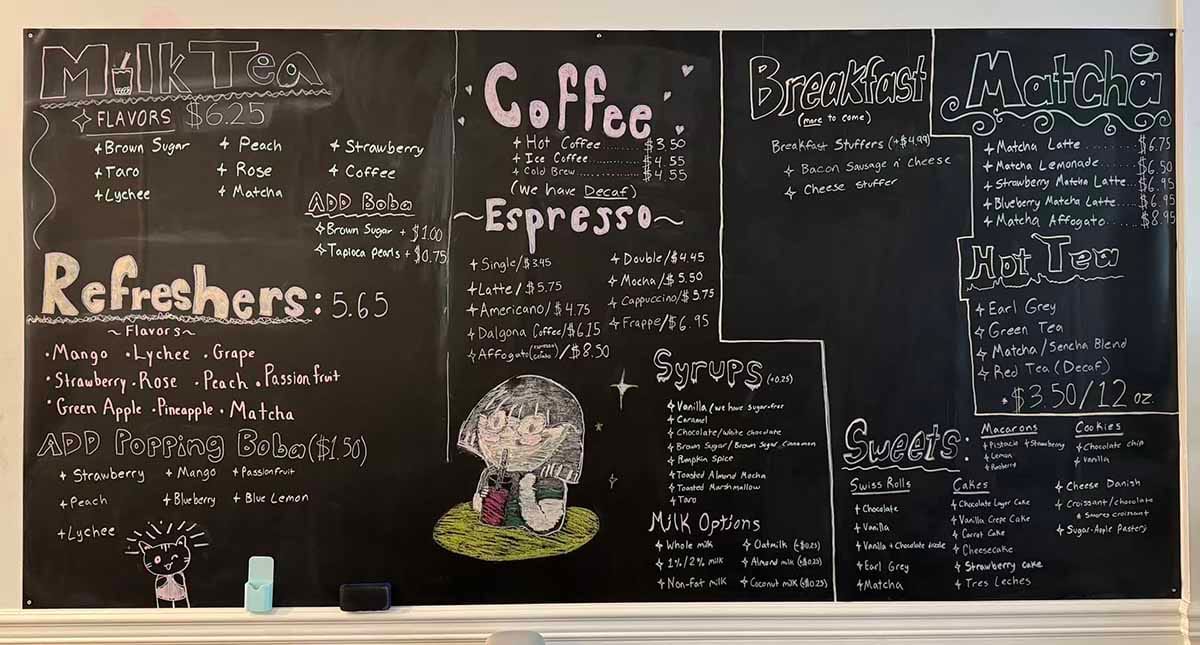 Milk Tea
FLAVORS $6.25
Brown Sugar Peach Strawberry
Taro Rose Coffee
Lychee Matcha
ADD Boba
Brown Sugar + $1.00
Tapioca pearls + $0.75
Refreshers: 5.65
~Flavors~
·Mango ·Lychee ·Grape
·Strawberry ·Rose ·Peach ·Passion fruit
·Green Apple ·Pineapple ·Matcha
ADD Popping Boba ($1.50)
Strawberry Mango Passionfruit
Peach Blueberry Blue Lemon
Lychee
Coffee
Hot Coffee........$3.50
Ice Coffee........$4.55
Cold Brew........$4.55
(We have Decaf)
~Espresso~
Single/$3.45 Double/$4.45
Latte/$5.75 Mocha/$5.50
Americano/$4.75 Cappuccino/$5.75
Dalgona Coffee/$6.15 Frappe/$6.95
Affogato /$8.50
Syrups (+0.25)
Vanilla (we have sugar-free
Caramel
Chocolate/white chocolate
Brown Sugar/Brown Sugar Cinnamon
Pumpkin Spice
Toasted Almond Mocha
Toasted Marshmallow
Taro
Milk Options
Whole milk Oatmilk (+$0.25)
1%/2% milk Almond milk (+$0.25)
Non-Fat milk Coconut milk (+$0.25)
Breakfast
(more to come)
Breakfast Stuffers (+$4.99)
Bacon Sausage n' Cheese
Cheese stuffer
Matcha
Matcha Latte........$6.75
Matcha Lemonade...$6.50
Strawberry Matcha Latte...$6.95
Blueberry Matcha Latte...$6.95
Matcha Affogato...$8.95
Hot Tea
Earl Grey
Green Tea
Matcha/Sencha Blend
Red Tea (Decaf)
*$3.50/12 oz.
Sweets:
Macarons
Pistacio Strawberry
Lemon
Cookies
Chocolate chip
Vanilla
Swiss Rolls
Chocolate
Vanilla
Vanilla + Chocolate
Earl Grey
Matcha
Cakes
Chocolate Layer Cake
Vanilla Crepe Cake
Carrot Cake
Cheesecake
Strawberry Cake
Tres Leches
Cheese Danish
Croissant/chocolate
Smores croissant
Sugar-Apple Pastery